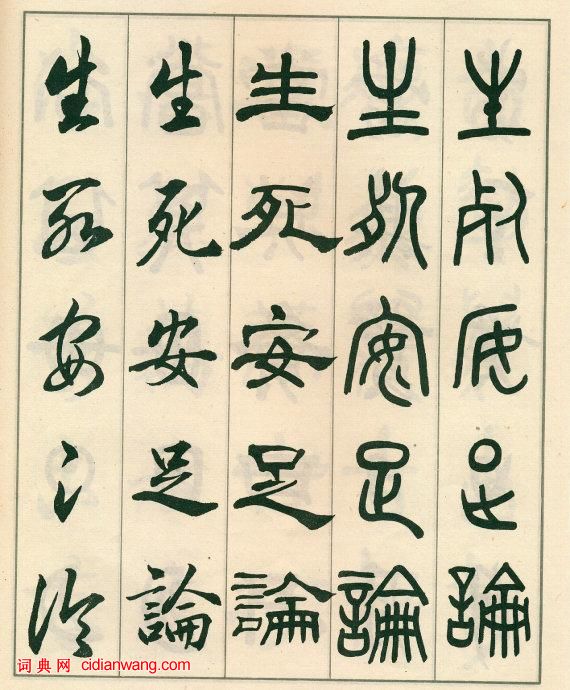 生死安足論
生死安足論
生死安足論
生死安足論
生死安足論
词典网 cidianwang.com